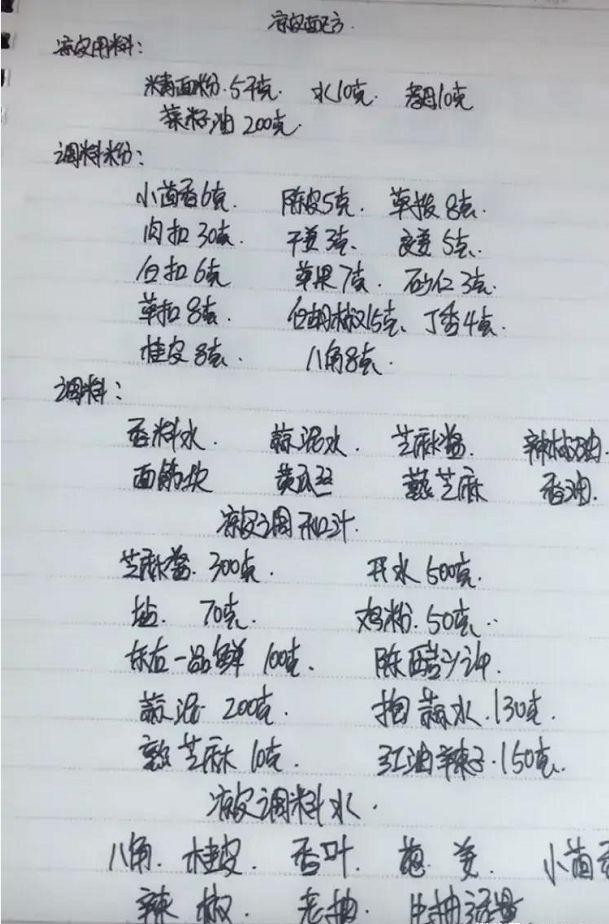 凉皮配方
凉皮用料：
精面粉.5千克 水10克. 酵母10克
菜籽油 200克.
调料粉：
小茴香6克. 陈皮5克. 草拨 8克.
肉扣 30克. 干姜 3克. 良姜 5克.
白扣 6克 草果 7克. 砂仁 3克.
草扣 8克. 白胡椒15克、丁香4克.
桂皮 8克. 八角8克.
调料：
香料水. 蒜泥水. 芝麻酱. 辣椒油.
面筋块 黄瓜丝 熟芝麻 香油.
凉皮调和汁.
芝麻酱. 300克. 开水 500克.
盐. 70克. 鸡粉. 50克.
东古一品鲜 100克. 陈醋
蒜泥 200克. 蒜水.130克.
熟芝麻 10克. 红油辣子.150克.
凉皮调料水.
八角. 桂皮. 香叶. 葱. 姜. 小茴香
辣椒. 老抽. 生抽适量